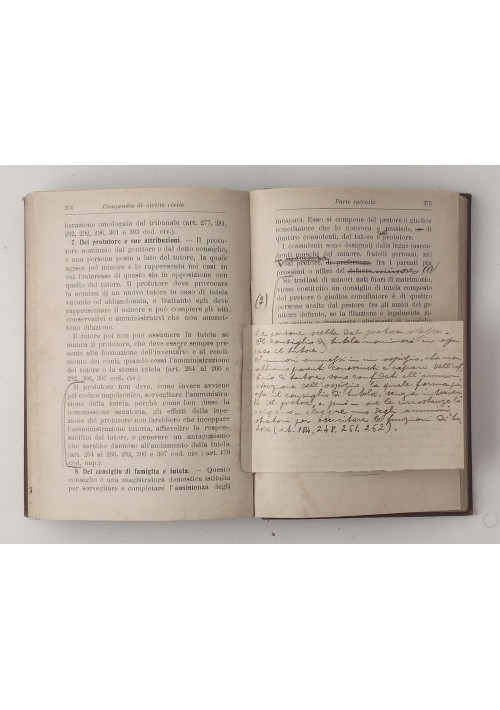 374 Compendio di diritto civile.
berazione omologata dal tribunale (art. 277, 281,
282, 292, 296, 301 e 303 cod. civ.).
7. Del protutore e sue attribuzioni. — Il protu-
tore nominato dal genitore o dal detto consiglio,
è una persona a lato del tutore, la quale
agisce pel minore e lo rappresenta nei casi in
cui l'interesse di questo sia in opposizione con
quello del tutore. Il protutore deve provocare
la nomina di un nuovo tutore in caso di tutela
vacante od abbandonata, e frattanto egli deve
rappresentare il minore e può compiere gli atti
conservativi e amministrativi che non ammet-
tono dilazione.
Il tutore poi non può assumere la tutela se
manca il protutore, che deve essere sempre pre-
sente alla formazione dell'inventario e al rendi-
mento dei conti, quando cessi l'amministrazione
del tutore o la stessa tutela (art. 264 al 266 e
282, 266, 307 cod. civ.).
Il protutore non deve, come invece avviene
pel codice napoleonico, sorvegliare l'amministra-
zione della tutela, perchè come ben disse la
commissione senatoria, gli effetti della ispe-
zione del protutore non farebbero che inceppare
l'amministrazione tutoria, affievolire la respon-
sabilità del tutore, e generare un antagonismo
che sarebbe dannoso all'andamento della tutela
(art. 264 al 266, 282 e 306 cod. civ.; art. 470
cod. nap.).
8. Del consiglio di famiglia e tutela. — Questo
consiglio è una magistratura domestica istituita
per sorvegliare e completare l'assistenza degli
Parte speciale. 375
incapaci. Esso si compone del pretore o giudice
conciliatore che lo convoca e presiede, di
quattro consulenti, del tutore e protutore.
I consulenti sono designati dalla legge (ascen-
denti maschi del minore, fratelli germani, zii)
dal pretore, di preferenza, fra i parenti più
prossimi o affini del
Se trattasi di minori nati fuori di matrimonio,
viene costituito un consiglio di tutela composto
del pretore o giudice conciliatore e di quattro
persone scelte dal pretore fra gli amici del ge-
nitore defunto, se la filiazione è legalmente
(2)
le persone scelte dal pretore stesso.
Al consiglio di tutela interviene in ogni
caso il tutore.
I minori ammessi in un ospizio, che non
abbiano parenti conosciuti e capaci dell'uf-
ficio di tutore, sono confidati all'ammini-
strazione dell'ospizio, la quale forma per
essi il consiglio di tutela, senza intervento
del pretore, e può, ove le circostanze lo
esigano, eleggere uno degli ammini-
stratori per esercitare le funzioni di tu-
tore (art. 184, 248, 261, 262).